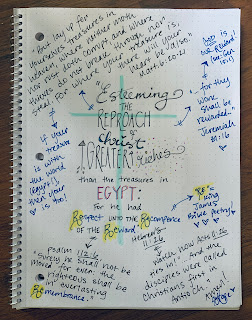 "But lay up for
yourselves treasures in
heaven, where neither moth
nor rust doth corrupt, and where
thieves do not break through nor
steal: For where your treasure is,
there will your
heart be also."
Matt. 6:20-21
"Esteeming
THE
REPROACH
of
Christ
GREATER riches
than the treasures in
EGYPT:
For he had
Respect unto the Recompence
of the Reward."
Hebrews
11:26
if your
treasure
is with
the world
(Egypt),
then your
is too!
God is
for they
work
shall be
rewarded..."
Jeremiah
31:16
"RE" =
King
James
Bible poetry!
Psalm 112:6
"Surely he shall not be
moved for ever: the
righteous shall be
in everlasting
Remembrance."
Acts 11:26
"And the
disciples were called
Christians first in
Antioch."